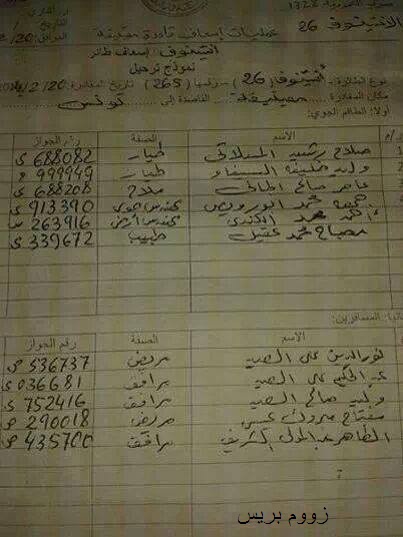 الانتينوف 26 عمليات إسعاف قاعدة معيتيقة
انتينوف إسعاف طائر
نموذج ترحيل
نوع الطائرة: انتينوف (26) رقمها (265) تاريخ المغادرة: 2014/2/20
مكان المغادرة معيتيقة القاصدة إلى تونس
أولا: الطاقم الجوي:
ر/م الاسم الصفة رقم الجواز
صلاح رشيد المسلاتي طيار 688082 ى
وليد خليفة طيار 999949
عامر صالح ملاح 688208 ى
محمد ابودرويس مهندس جوي 913390 ى
محمد الكندي مهندس أرضي 263916
مصباح محمد عقيل طبيب 339672 ى
المسافرين:
الاسم الصفة رقم الجواز
نورالدين علي الصيد مريض 536737
عبدالحكيم علي الصيد مرافق 036681 ى
وليد صالح الصيد مرافق 752416 ى
مفتاح مبروك عيسى مريض 290018
الطاهر عبدالمولى الشريف مرافق 435700
زووم بريس